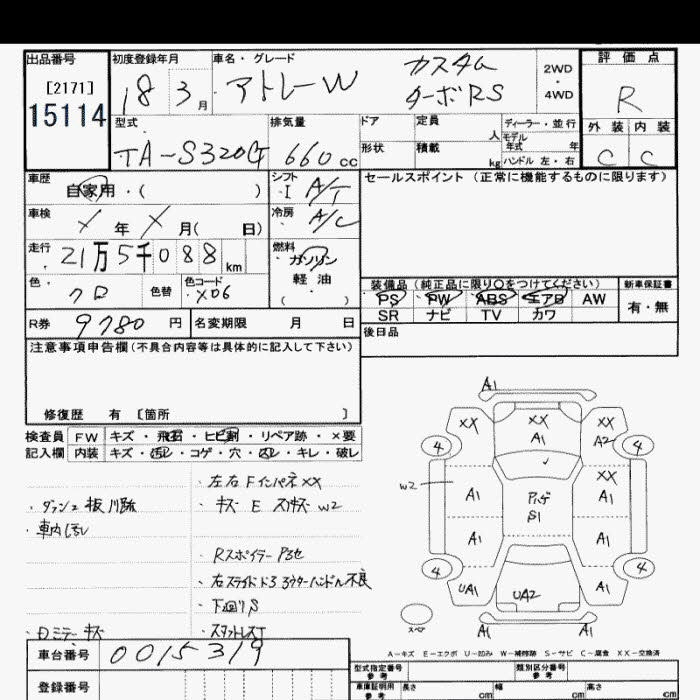 出品番号
[2171]
15114
初度登録年月
18 3月
車名・グレード
アトレーW カスタム
ターボRS
2WD
・
4WD
評価点
R
外装 内装
C C
型式
TA-S320G
排気量
660cc
ドア
定員
人
ディーラー・並行
モデル
年式 年
形状
積載
kg
ハンドル 左・右
車歴
自家用・( )
シフト
I A/T
車検
X年X月( 日)
冷房
A/C
走行
21万5千088km
燃料
ガソリン
軽油
( )
色
クロ
色替
色コード
X06
R券 9780円
名変期限 月 日
セールスポイント (正常に機能するものに限ります)
装備品 (純正品に限り○をつけてください)
新車保証書
PS PW ABS エアB AW
SR ナビ TV カワ
有・無
後日品
注意事項申告欄(不具合内容等は具体的に記入して下さい)
修復歴 有 〔箇所 〕
検査員
記入欄
FW キズ・飛石・ヒビ割・リペア跡・×要
内装 キズ・汚レ・コゲ・穴・凶レ・キレ・破レ
・左右Fインパネ XX
・ダッシュ板
・キズ E スリキズ W2
・車内汚レ
Rスポイラー
・右スライドドア アウターハンドル不良
・下廻りS
・Dミラー キズ
・スタットレスT
A1
XX XX XX
A1 A2
4 4
W2
A1 XX
A1
S1
A1 A1
4 4
UA1 UA2 A1
スペア
A1 A1
A-キズ E-エクボ U-凹み W-補修跡 S-サビ C-腐食 XX-交換済
車台番号 0015319
登録番号
型式指定番号
参考
類別区分番号
参考
車庫証明用
参考
長さ cm
幅 cm
高さ cm